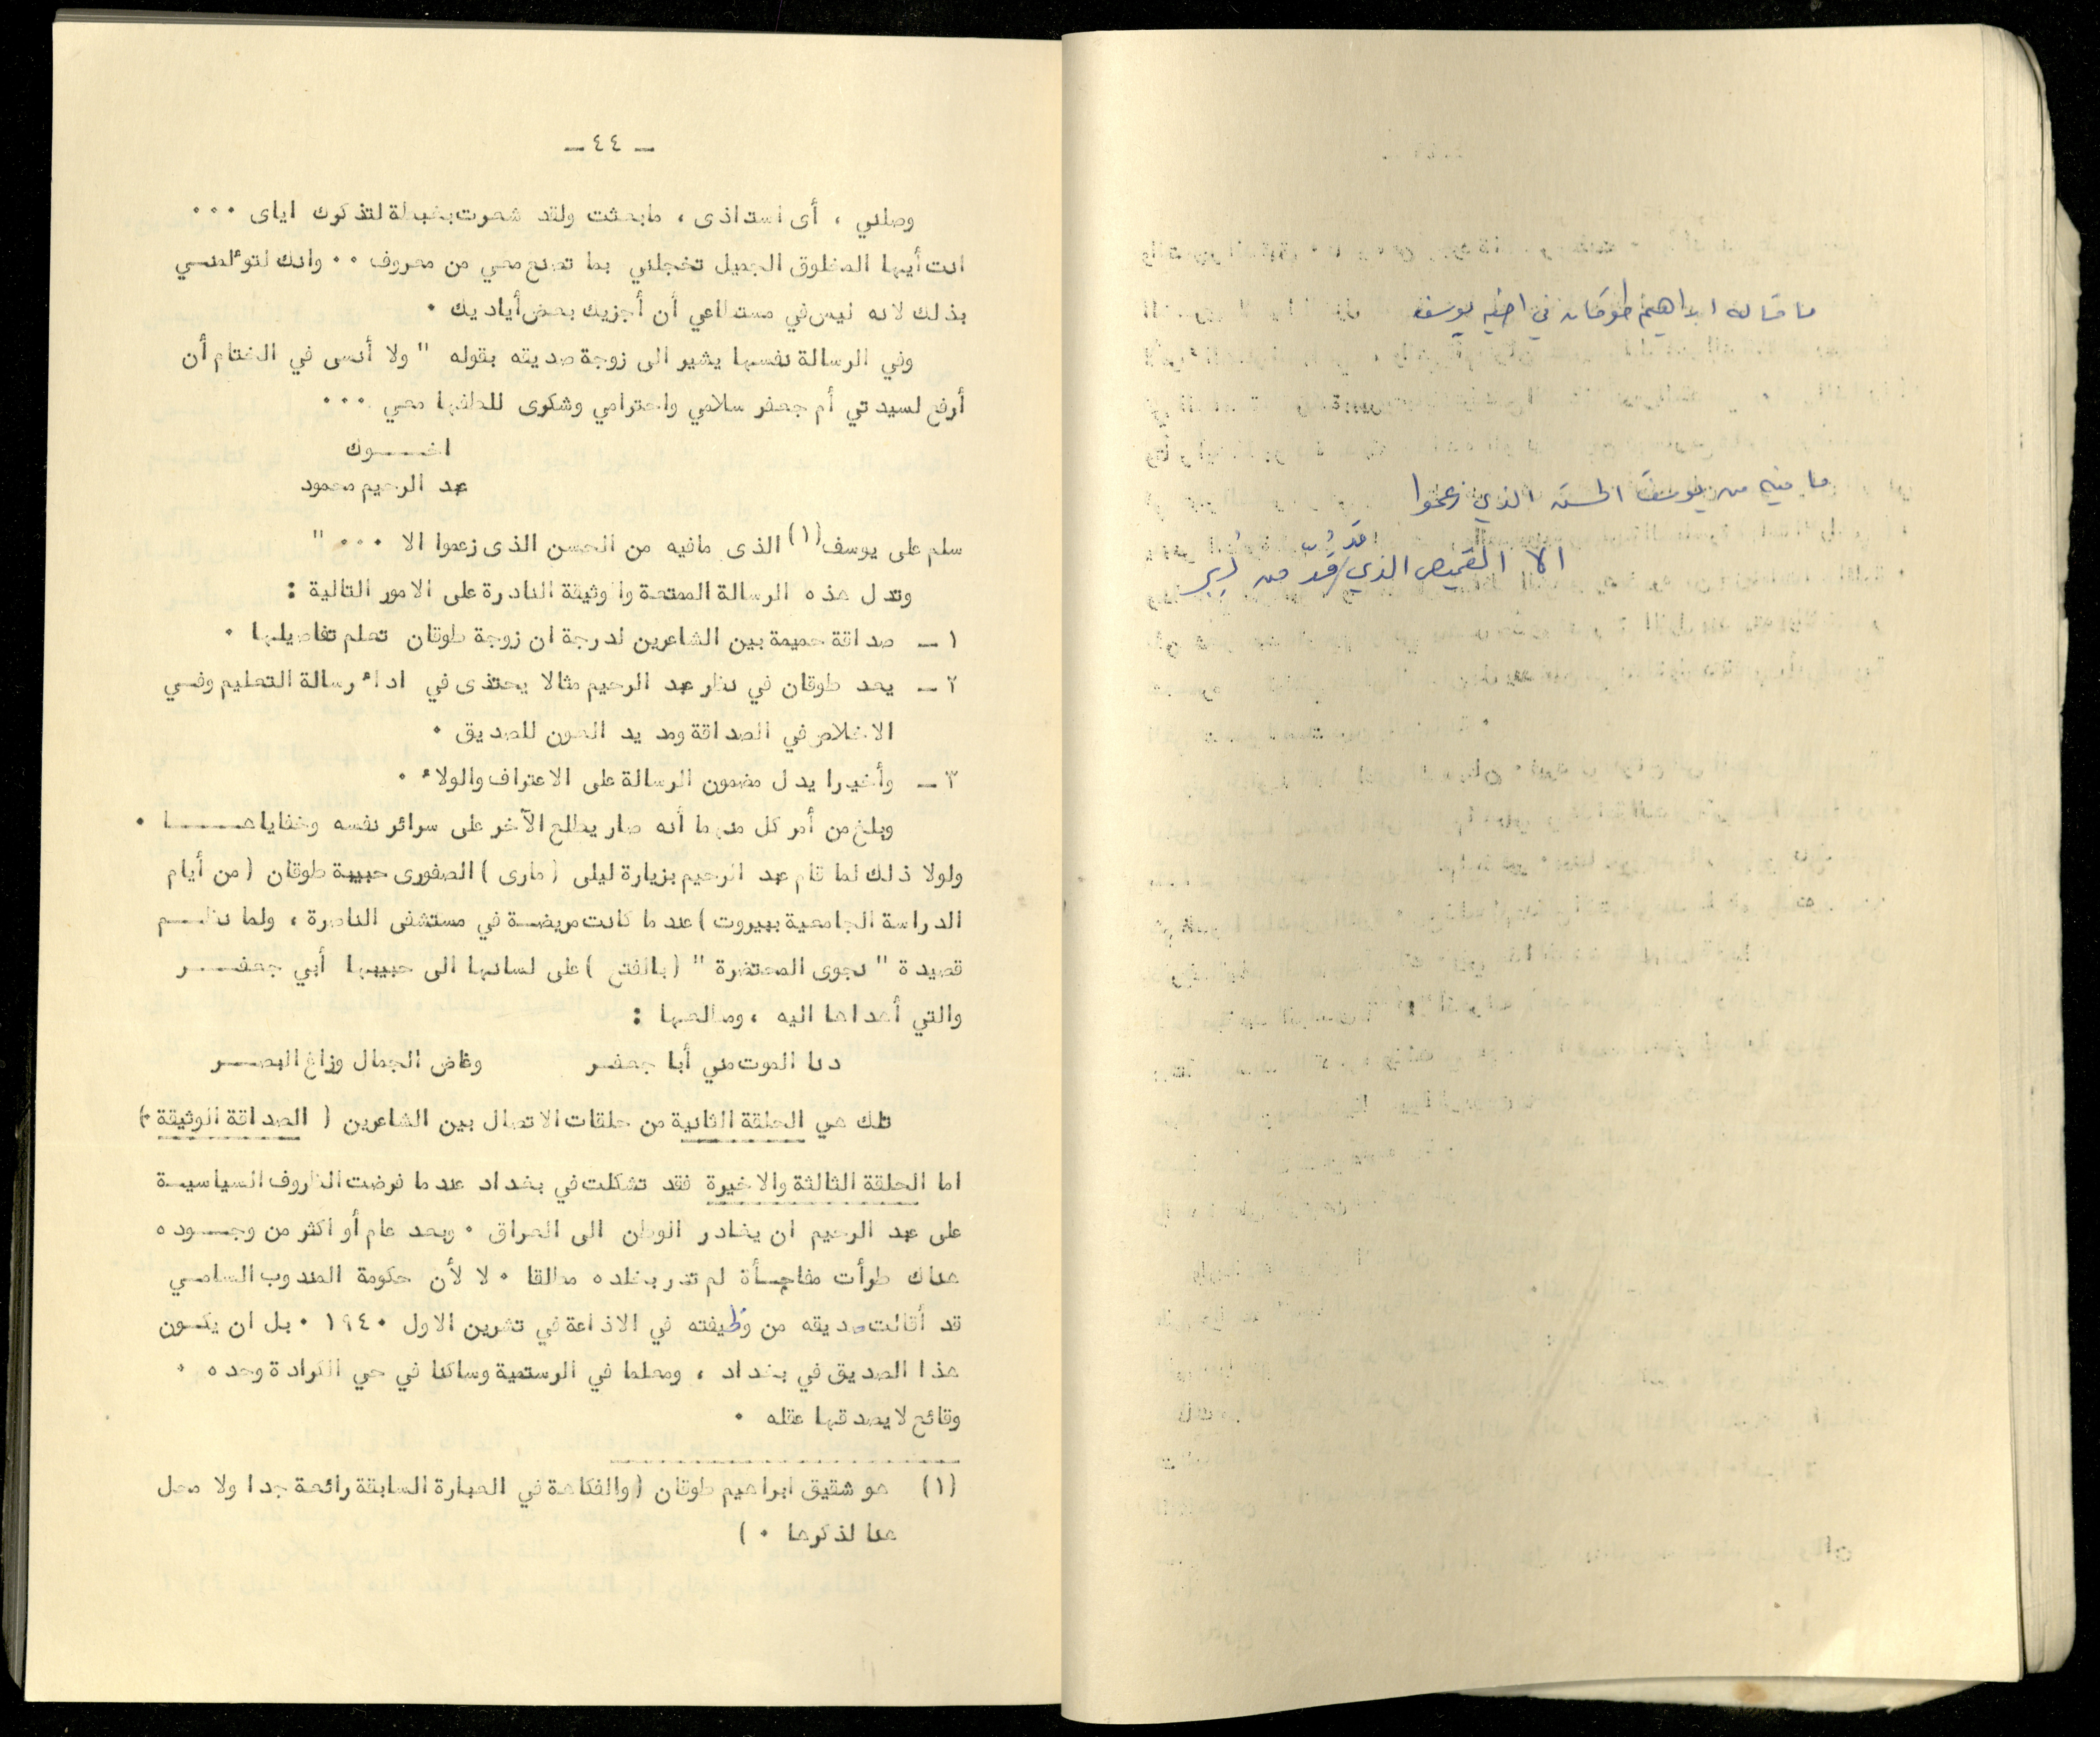 ـ ٤٤ ـ
وصلني ، أى استاذى ، مابعثت ولقد شعرت بغبطة لتذكرك اياى ٠٠٠
انت أيها المخلوق الجميل تخجلني بما تصنع معي من معروف ٠٠ وانك لتوءلمنــي
بذلك لانه ليس في مستطاعي أن أجزيك بعض أياديك ٠
وفي الرسالة نفسها يشير الى زوجة صديقه بقوله " ولا أنسى في الختام أن
أرفع لسيدتي أم جعفر سلامي واحترامي وشكرى للطفها معي ٠٠٠
اخــــوك
عبد الرحيم محمود
سلم على يوسف (١) الذى مافيه من الحسن الذى زعموا الا ٠٠٠ "
وتدل هذه الرسالة الممتعة والوثيقة النادرة على الامور التالية :
١ ـ صداقة حميمة بين الشاعرين لدرجة ان زوجة طوقان تعلم تفاصيلها ٠
٢ ـ يعد طوقان في نظر عبد الرحيم مثالا يحتذى في اداء رسالة التعليم وفــي
الاخلاص في الصداقة ومد يد العون للصديق ٠
٣ ـ وأخيرا يدل مضمون الرسالة على الاعتراف والولاء ٠
وبلغ من أمر كل منهما أنه صار يطلع الآخر على سرائر نفسه وخفاياهـــــا ٠
ولولا ذلك لما قام عبد الرحيم بزيارة ليلى (مارى) الصفورى حبيبة طوقان (من أيام
الدراسة الجامعية ببيروت) عندما كانت مريضــة في مستشفى الناصرة ، ولما نظـــم
قصيدة " نجوى المحتضرة " (بالفتح) على لسانها الى حبيبها أبي جعفــــر
والتي أهداها اليه ، ومطلعها :
دنا الموت مني أبا جعفــر وغاض الجمال وزاغ البصـــر
تلك هي الحلقة الثانية من حلقات الاتصال بين الشاعرين ( الصداقة الوثيقة ٠)
اما الحلقة الثالثة والاخيرة فقد تشكلت في بغداد عندما فرضت الظروف السياسيـة
على عبد الرحيم ان يغادر الوطن الى العراق ٠ وبعد عام أو اكثر من وجـــوده
هناك طرأت مفاجــأة لم تدر بخلده مطلقا ٠ لا لأن حكومة المندوب السامــي
قد أقالت صديقه من وظيفته في الاذاعة في تشرين الاول ١٩٤٠ ٠ بل ان يكــون
هذا الصديق في بغداد ، ومعلما في الرستمية وساكنا في حي الكرادة وحده ٠
وقائع لايصدقها عقله ٠
(١) هو شقيق ابراهيم طوقان (والفكاهة في العبارة السابقة رائعة جدا ولا محل
هنا لذكرها ٠ )
ما قاله ابراهيم طوقان في اخيه يوسف
ما فيه من يوسف الحسن الذي زعموا
الا القميص الذي قد قُدَّ من دُبُر